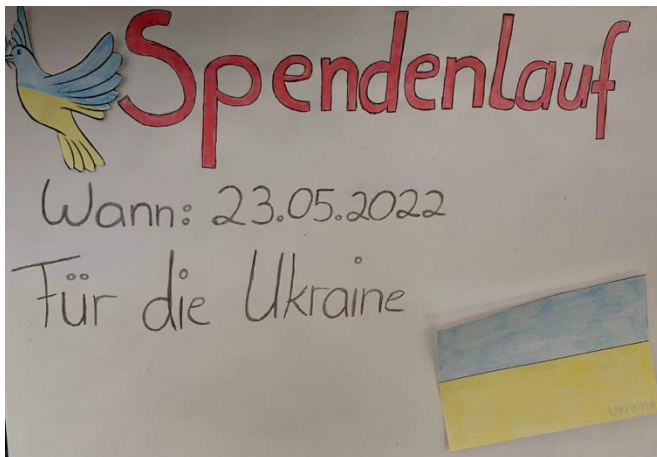 Spendenlauf
Wann: 23.05.2022
Für die Ukraine
Ukraine